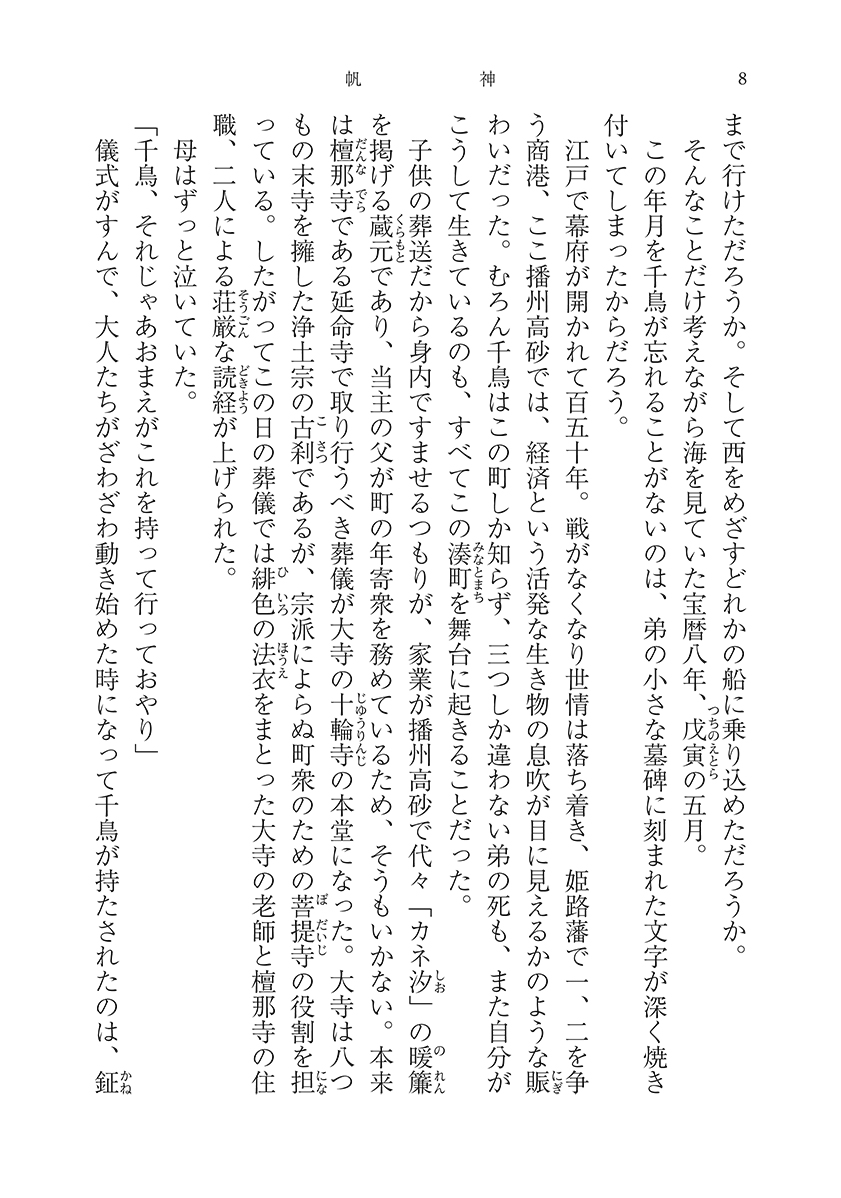 8
帆神
まで行けただろうか。そして西をめざすどれかの船に乗り込めただろうか。
そんなことだけ考えながら海を見ていた宝暦八年、戊寅の五月。
つちのえとら
この年月を千鳥が忘れることがないのは、弟の小さな墓碑に刻まれた文字が深く焼き
付いてしまったからだろう。
江戸で幕府が開かれて百五十年。戦がなくなり世情は落ち着き、姫路藩で一、二を争
う商港、ここ播州高砂では、経済という活発な生き物の息吹が目に見えるかのような賑
にぎ
わいだった。むろん千鳥はこの町しか知らず、三つしか違わない弟の死も、また自分が
こうして生きているのも、すべてこの湊町を舞台に起きることだった。
みなとまち
子供の葬送だから身内ですませるつもりが、家業が播州高砂で代々「カネ汐」の暖簾
しお のれん
を掲げる蔵元であり、当主の父が町の年寄衆を務めているため、そうもいかない。本来
くらもと
は檀那寺である延命寺で取り行うべき葬儀が大寺の十輪寺の本堂になった。大寺は八つ
だんなでら じゆうりんじ
もの末寺を擁した浄土宗の古刹であるが、宗派によらぬ町衆のための菩提寺の役割を担
こさつ ぼだいじ にな
っている。したがってこの日の葬儀では緋色の法衣をまとった大寺の老師と檀那寺の住
ひいろ ほうえ
職、二人による荘厳な読経が上げられた。
そうごん どきよう
母はずっと泣いていた。
「千鳥、それじゃあおまえがこれを持って行っておやり」
儀式がすんで、大人たちがざわざわ動き始めた時になって千鳥が持たされたのは、鉦
かね